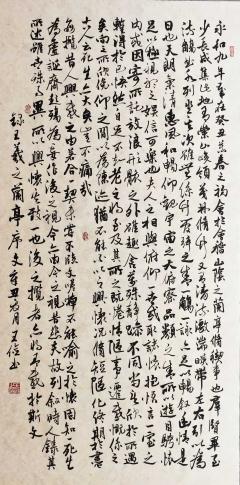 永和九年歲在癸丑暮春之初會於會稽山陰之蘭亭脩稧事也群賢畢至
少長咸集此地有崇山峻領茂林脩竹又有清流激湍映帶左右引以為
流觴曲水列坐其次雖無絲竹管弦之盛一觴一詠亦足以暢敘幽情是
日也天朗氣清惠風和暢仰觀宇宙之大俯察品類之盛所以遊目騁懷
足以極視聽之娛信可樂也夫人之相與俯仰一世或取諸懷抱悟言一室之
內或因寄所託放浪形骸之外雖趣舍萬殊靜躁不同當其欣於所遇
暫得於己快然自足不知老之將至及其所之既倦情隨事遷感慨係之
矣向之所欣俛仰之間以為陳迹猶不能不以之興懷況脩短隨化終期於盡
古人云死生亦大矣豈不痛哉
每攬昔人興感之由若合一契未嘗不臨文嗟悼不能喻之於懷固知一死生
為虛誕齊彭殤為妄作後之視今亦由今之視昔悲夫故列敘時人錄其
所述雖世殊事異所以興懷其致一也後之攬者亦將有感於斯文
錄王羲之蘭亭序文辛丑月王書